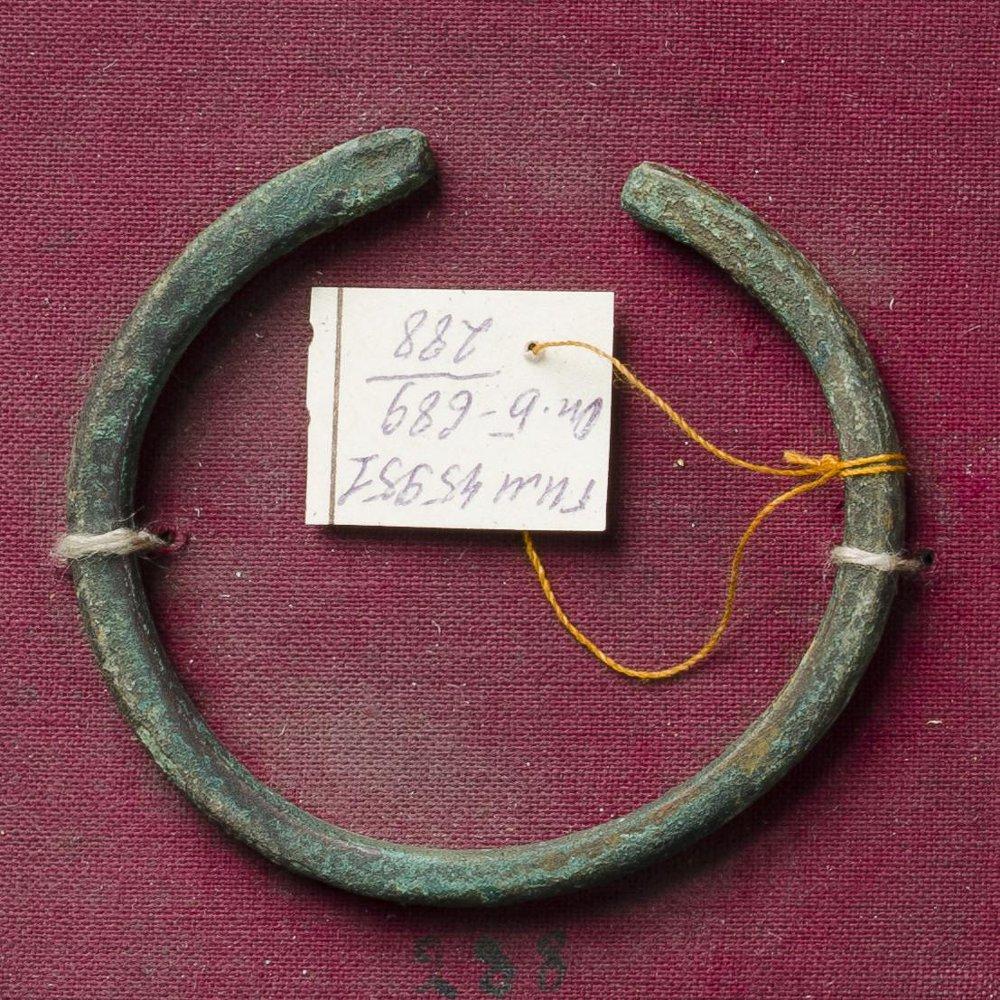 ГИМ 45951
Оп. Б-689
288
288